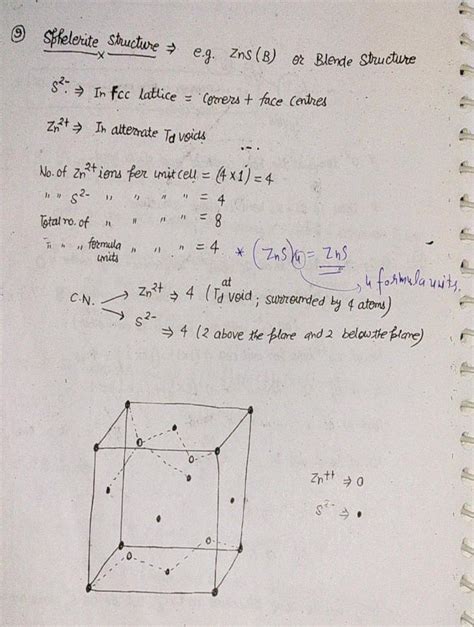 ⑨ Sphelerite Structure ⇒ e.g. ZnS (B) or Blende Structure
S²⁻ ⇒ In FCC lattice = Corners + face centres
Zn²⁺ ⇒ In alternate Td voids
No. of Zn²⁺ ions per unit cell = (4×1) = 4
" " S²⁻ " " " = 4
Total no. of " " " = 8
" " formula units " " = 4 * (ZnS)4 = ZnS
4 formula units.
C.N. → Zn²⁺ ⇒ 4 (at Td void; surrounded by 4 atoms)
→ S²⁻ ⇒ 4 (2 above the plane and 2 below the plane)
Zn⁺⁺ ⇒ o
S²⁻ ⇒ •